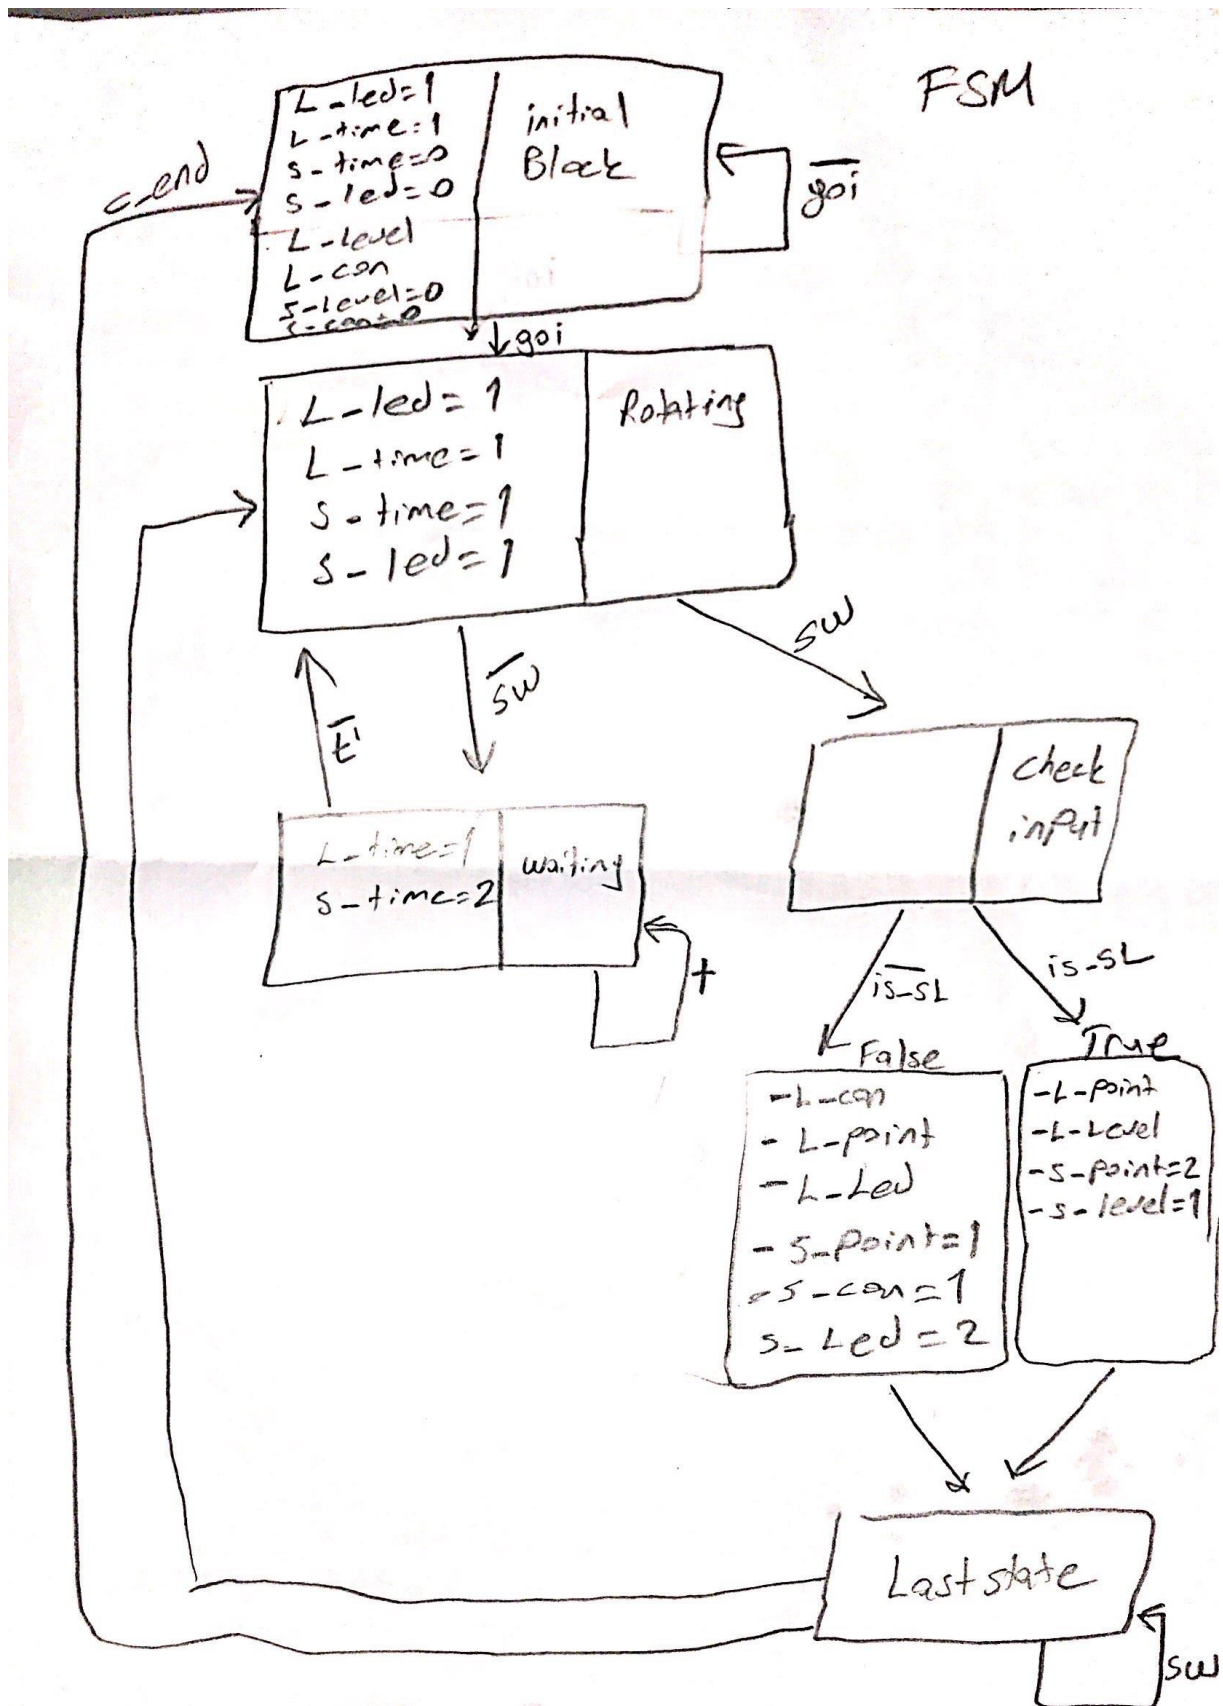 FSM
L_led=1
L_time=1
s_time=0
s_led=0
L_level
L_con
s_level=0
s_con=0
initial
Block
g̅o̅i̅
c_end
goi
L_led=1
L_time=1
s_time=1
s_led=1
Rotating
s̅w̅
sw
L_time=1
s_time=2
waiting
t
check
input
i̅s̅_̅s̅L̅
is_sL
False
-L_con
- L_point
- L_Led
- s_point=1
- s_con=1
s_Led=2
True
-L_point
-L_Level
-s_point=2
-s_level=1
Last state
sw